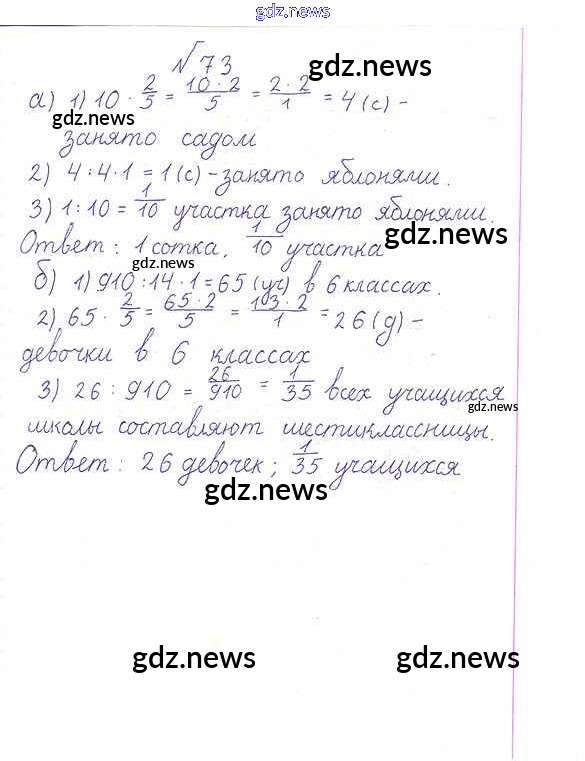 gdz.news
№73
gdz.news
а) 1) 10 · 2/5 = 10 · 2/5 = 2 · 2/1 = 4 (с) -
gdz.news
занято садом
2) 4 : 4 · 1 = 1 (с) - занято яблонями.
3) 1 : 10 = 1/10 участка занято яблонями.
Ответ : 1 сотка, 1/10 участка
gdz.news
gdz.news
б) 1) 910 : 14 · 1 = 65 (уч) в 6 классах.
2) 65 · 2/5 = 65 · 2/5 = 13 · 2/1 = 26 (д) -
девочки в 6 классах
3) 26 : 910 = 26/910 = 1/35 всех учащихся
gdz.news
школы составляют шестиклассницы.
Ответ : 26 девочек ; 1/35 учащихся
gdz.news
gdz.news
gdz.news